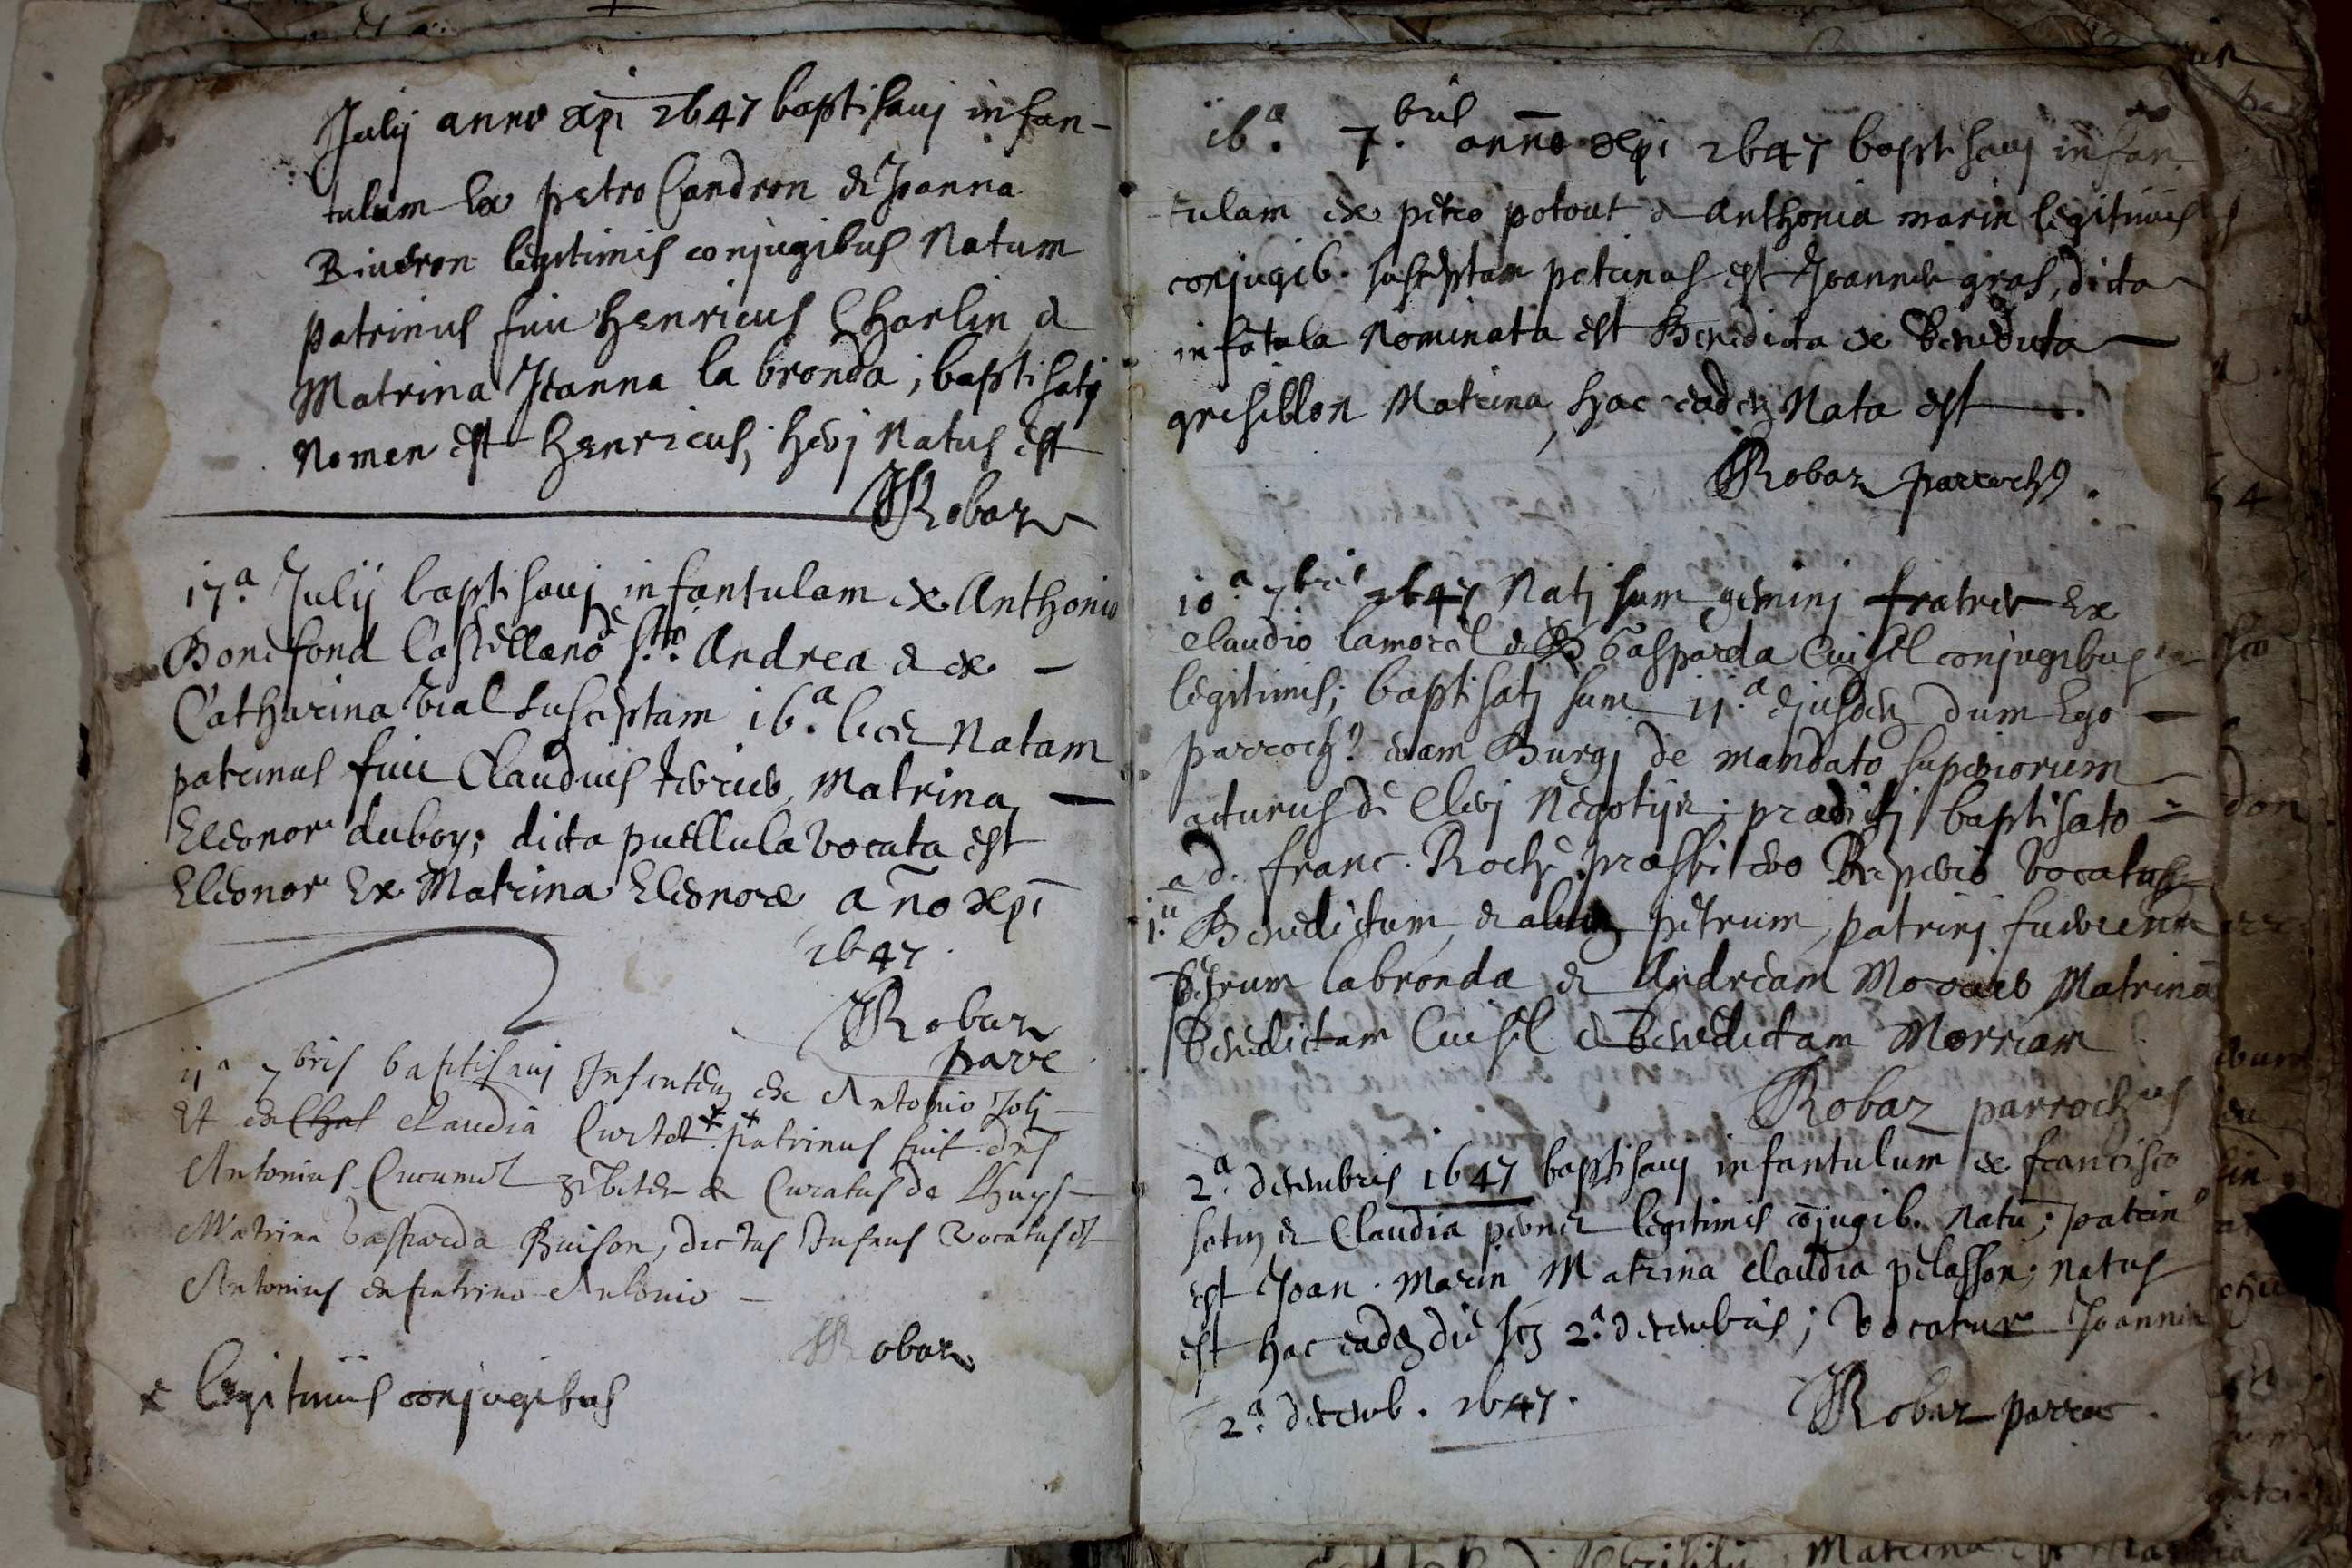 Julij anno xpi 1647 baptisavj infan-
tulum Ex petro Candron & Joanna
Biueron legitimis conjugibus Natum
patrinus fuit henricus Charlin &
Matrina Joanna la bronda; baptisatj
nomen est henricus; herj natus est
Robaz
17.a Julij baptisavj infantulam ex Anthonio
Bonefond Castellano de s.ti Andrea & ex
Catharina vial susceptam 16.a Natam
patrinus fuit Claudius Matrina
Eleonor duboy; dicta puellula vocata est
Eleonor Ex Matrina Eleonora año xpi
1647.
Robaz
parr
11a 7bris baptisavj Infantem ex Antonio Jolj
Et ex Chat Claudia Curtet x x patrinus fuit dns
Antonius Cucumel & Curatus de Lhuys
Matrina Gasparda Buison, dictus Infans vocatus est
Antonius ex patrino Antonio
Robaz
x legitimis conjugibus
16.a 7.bris anno xpi 1647 baptisavj infan
tulam ex petro potout & Anthonia marin legitimis
conjugib. susceptam patrinus est Joannes gras, dicta
infātula Nominata est Benedicta ex Benedicta
grisillon Matrina, hac eadem Nata est
Robaz parrochus.
10.a 7bris 1647 Natj sunt geminj fratres Ex
claudio lamorel & Gasparda Cuisel conjugibus
legitimis; baptisatj sunt 11.a ejusdem dum Ego
parrochus eram Burgj de mandato superiorum
acturus de Clerj Negotijs; praedictj baptisatj
a d. franc. Roche praesbitero vocatus
1.us Benedictum, & alium petrum, patrinj fuerunt
petrum labronda & Andream Matrinā
Benedictam Cuisel & Benedictam Morriam
Robaz parrochus
2.a decembris 1647 baptisavj infantulum ex francisco
& Claudia pernet legitimis cōjugib. natū; patrinus
est Joan. Marin Matrina claudia pelasson; natus
est hac eadem die scz 2.a decembris; vocatur Joannes
2.a decemb. 1647.
Robaz parroc.